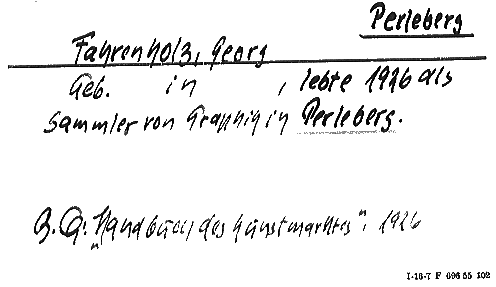 Perleberg
Fahrenholz, Georg
Geb. in , lebte 1926 als
Sammler von Graphig in Perleberg.
Z. Q: "Handbuch des Kunstmarktes", 1926
I-16-7 F 696 55 102